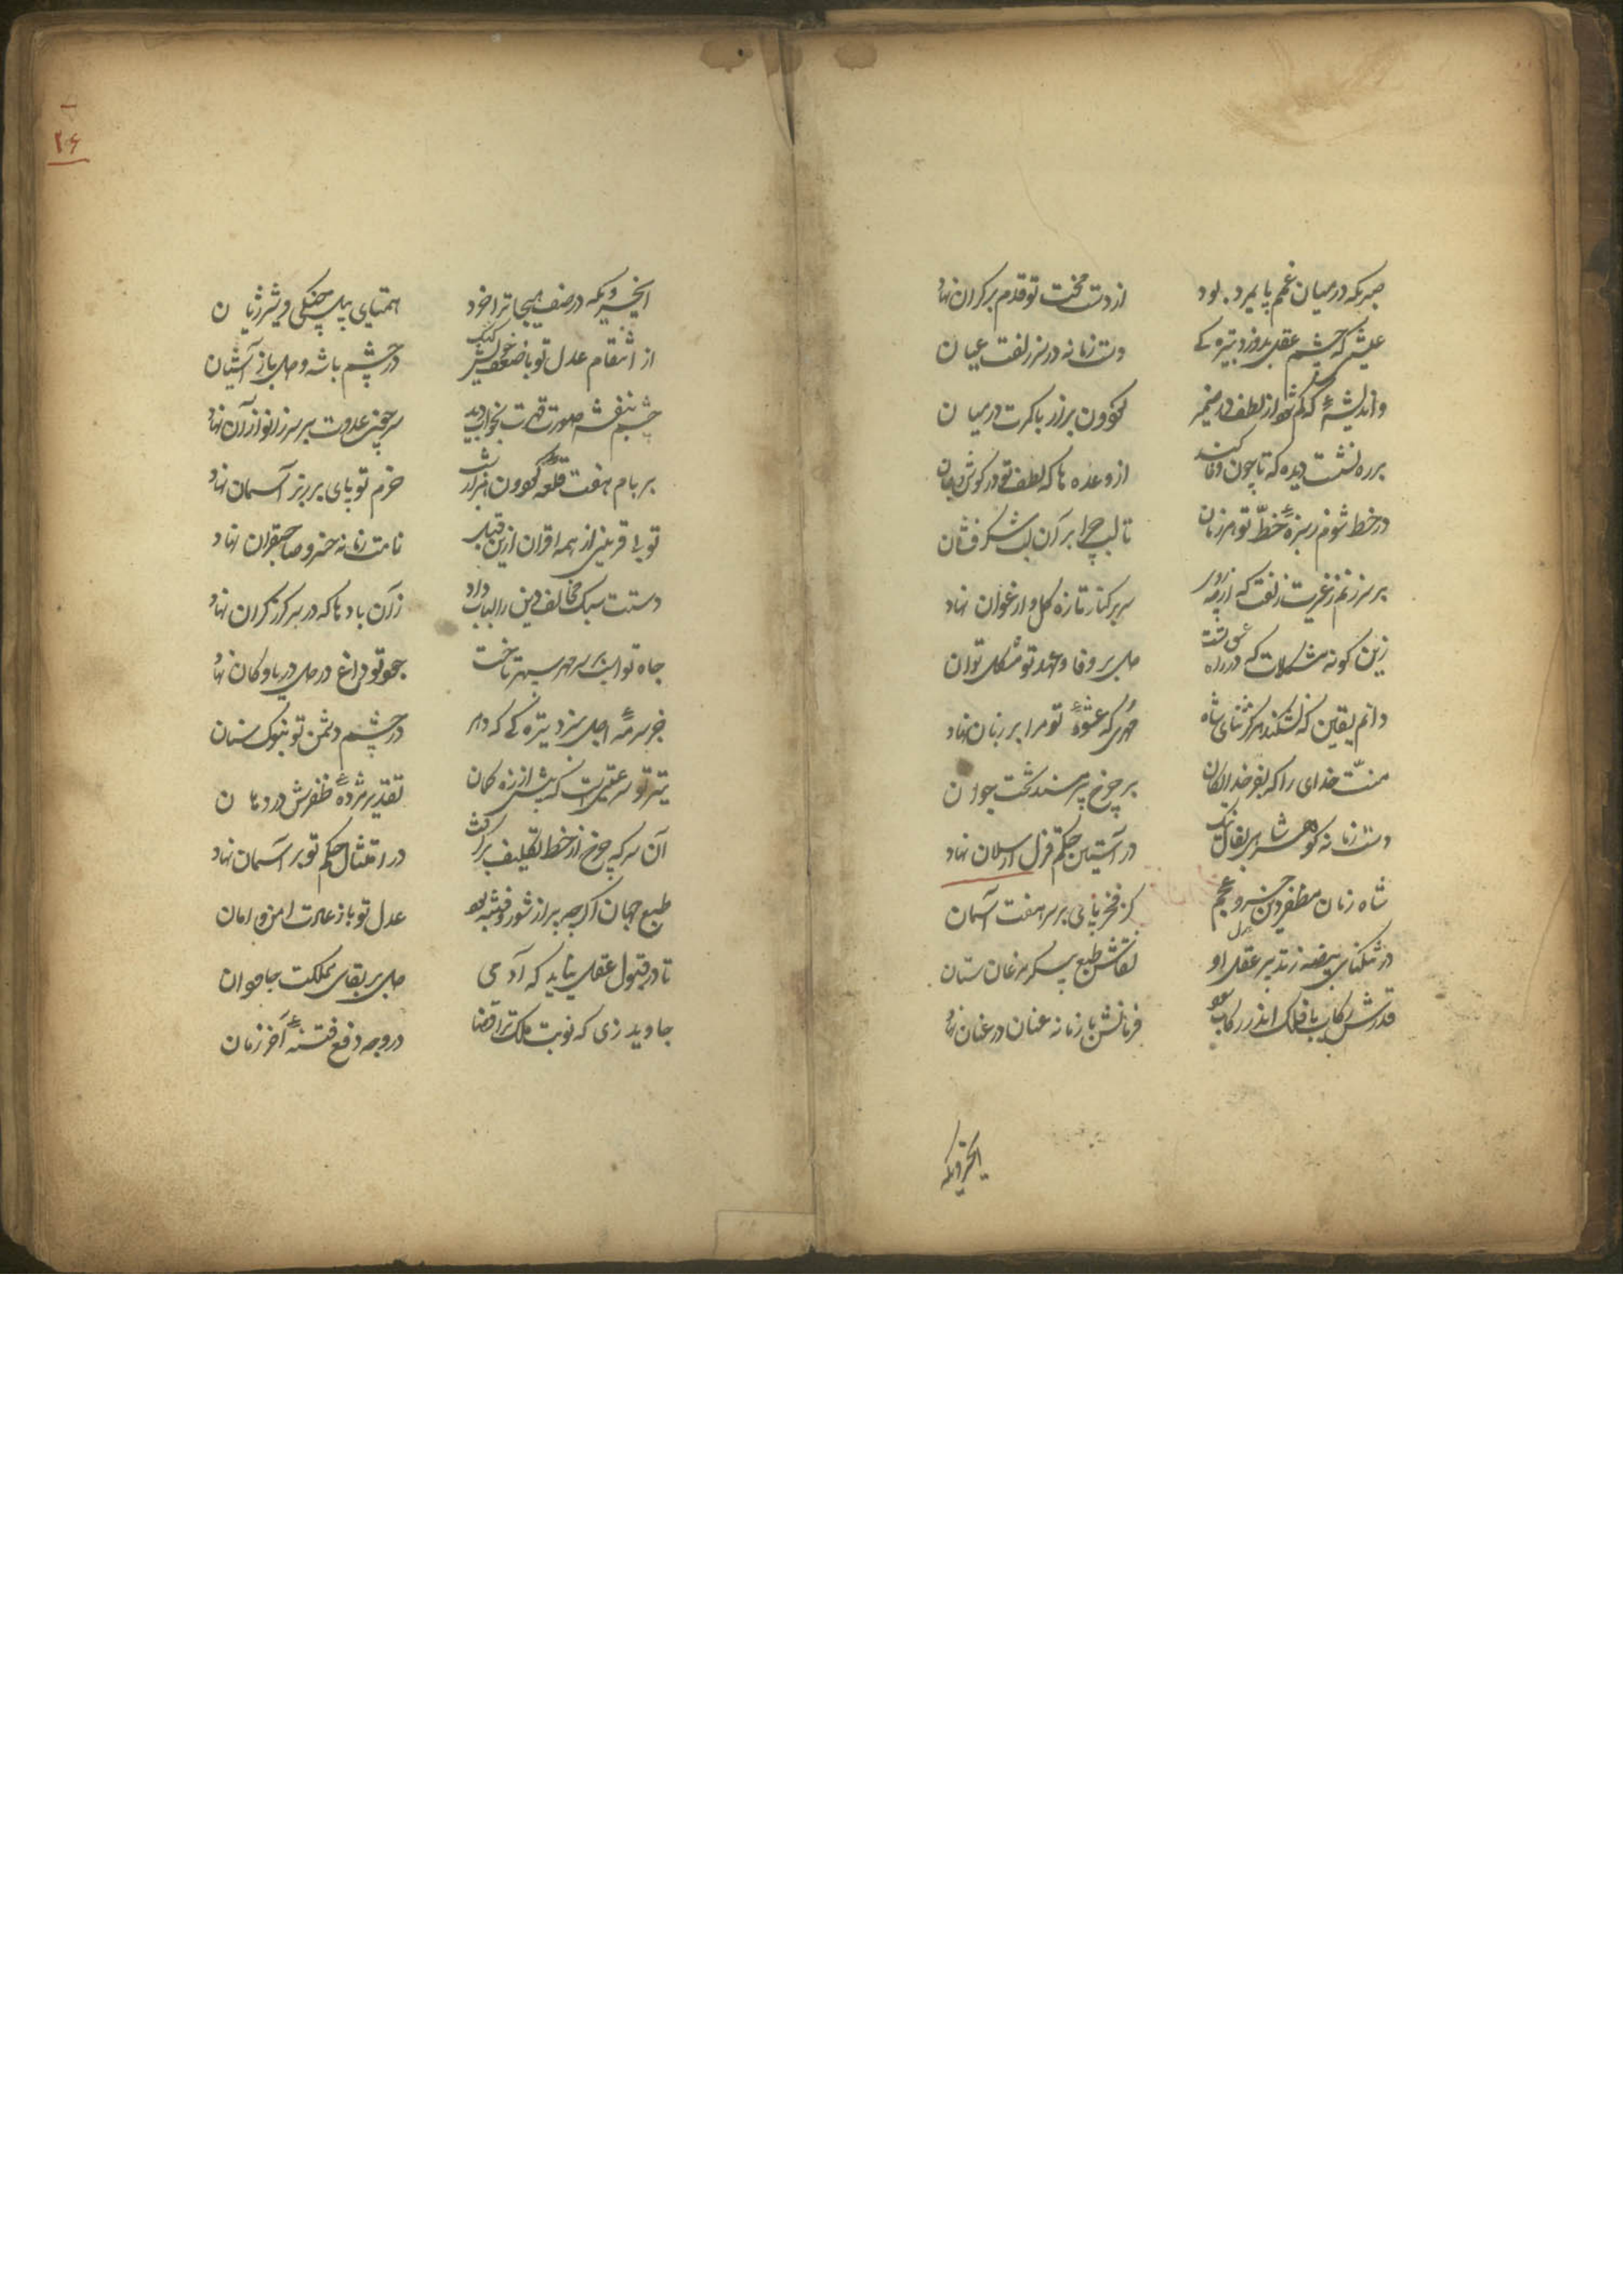 صبریکه در میان غمم پایمرد بود
از دست محنت تو قدم بر کران نهاد
عشقت که چشم عقل بدوزد بتیر
دست زمانه در سر زلفت عیان
واندیشهٔ که گم شود از لطف در ضمیر
گردون براز با کمرت در میان
بر ره نشست دیده که تا چون وفا کند
از وعده ها که لطف تو در گوش جان
در خط شوم ز سبزهٔ خط تو هر زمان
تا لب چرا بر آن لب شکر فشان
بر سر زنم ز غیرت زلفت که از چه
سر بر کنار تازه گل و ارغوان نهاد
زین گونه مشکلات که در راه عشق تست
دل بر وفا و عهد تو مشکل توان
دانم یقین که نشکند هرگز ثنای شاه
مهری که عشوهٔ تو مرا بر زبان نهاد
منت خدای را که بفر خدایگان
بر چرخ پیر مسند بخت جوان
دست زمانه گوهر شاهی بفال نیک
در آستین حکم قزل ارسلان نهاد
شاه زمان مظفر دین خسرو عجم
کز فخر پای بر سر هفت آسمان
در تنگنای بیضه ز تدبیر عقل او
نقاش طبع پیکر مرغان ستان
قدرش رکاب با فلک اندر رکاب
فرمانش با زمانه عنان در عنان نهاد
ایخسرویکه
۲۶
ایخسرویکه در صف هیجا ترا خرد
همتای پیل جنگی و شیر ژیان
از انتقام عدل تو با ضعف خویش کبک
در چشم باشه و دل باز آشیان
چشم بنفشه صورت قهرت بخواب دید
سر چون عدوت بر سر زانو از آن نهاد
بر بام هفت قلعه گردون هزار شب
حزم تو پای برتر آسمان نهاد
تو بی قرینی از همه اقران ازین قبل
نامت زمانه خسرو صاحبقران نهاد
دستت سبک مخالف دین را بباد داد
زآن بادها که در سر گرز گران نهاد
جاه تو اسب بر سر مهر سپهر تاخت
جود تو داغ در دل دریا و کان نهاد
جز سرمهٔ اجل نبرد تیرگی که دهر
در چشم دشمن تو بنوک سنان
تیر تو سرعتیست که پیش از زه کمان
تقدیر مژدهٔ ظفرش در دهان
آن سر که چرخ از خط تکلیف برکشد
در امتثال حکم تو بر آسمان نهاد
طبع جهان اگر چه پر از شور و فتنه بود
عدل تو باز عادت امن و امان
تا در قبول عقل نیاید که آدمی
دل بر بقای مملکت جاودان
جاوید زی که نوبت ملک ترا قضا
در وجه دفع فتنهٔ آخر زمان